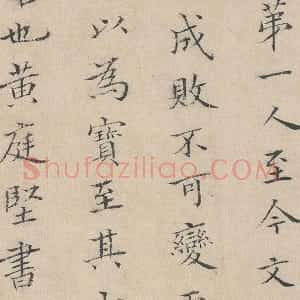 第一人至今文
成敗不可變
以為寶至其
也黃庭堅書
Shufaziliao.COM